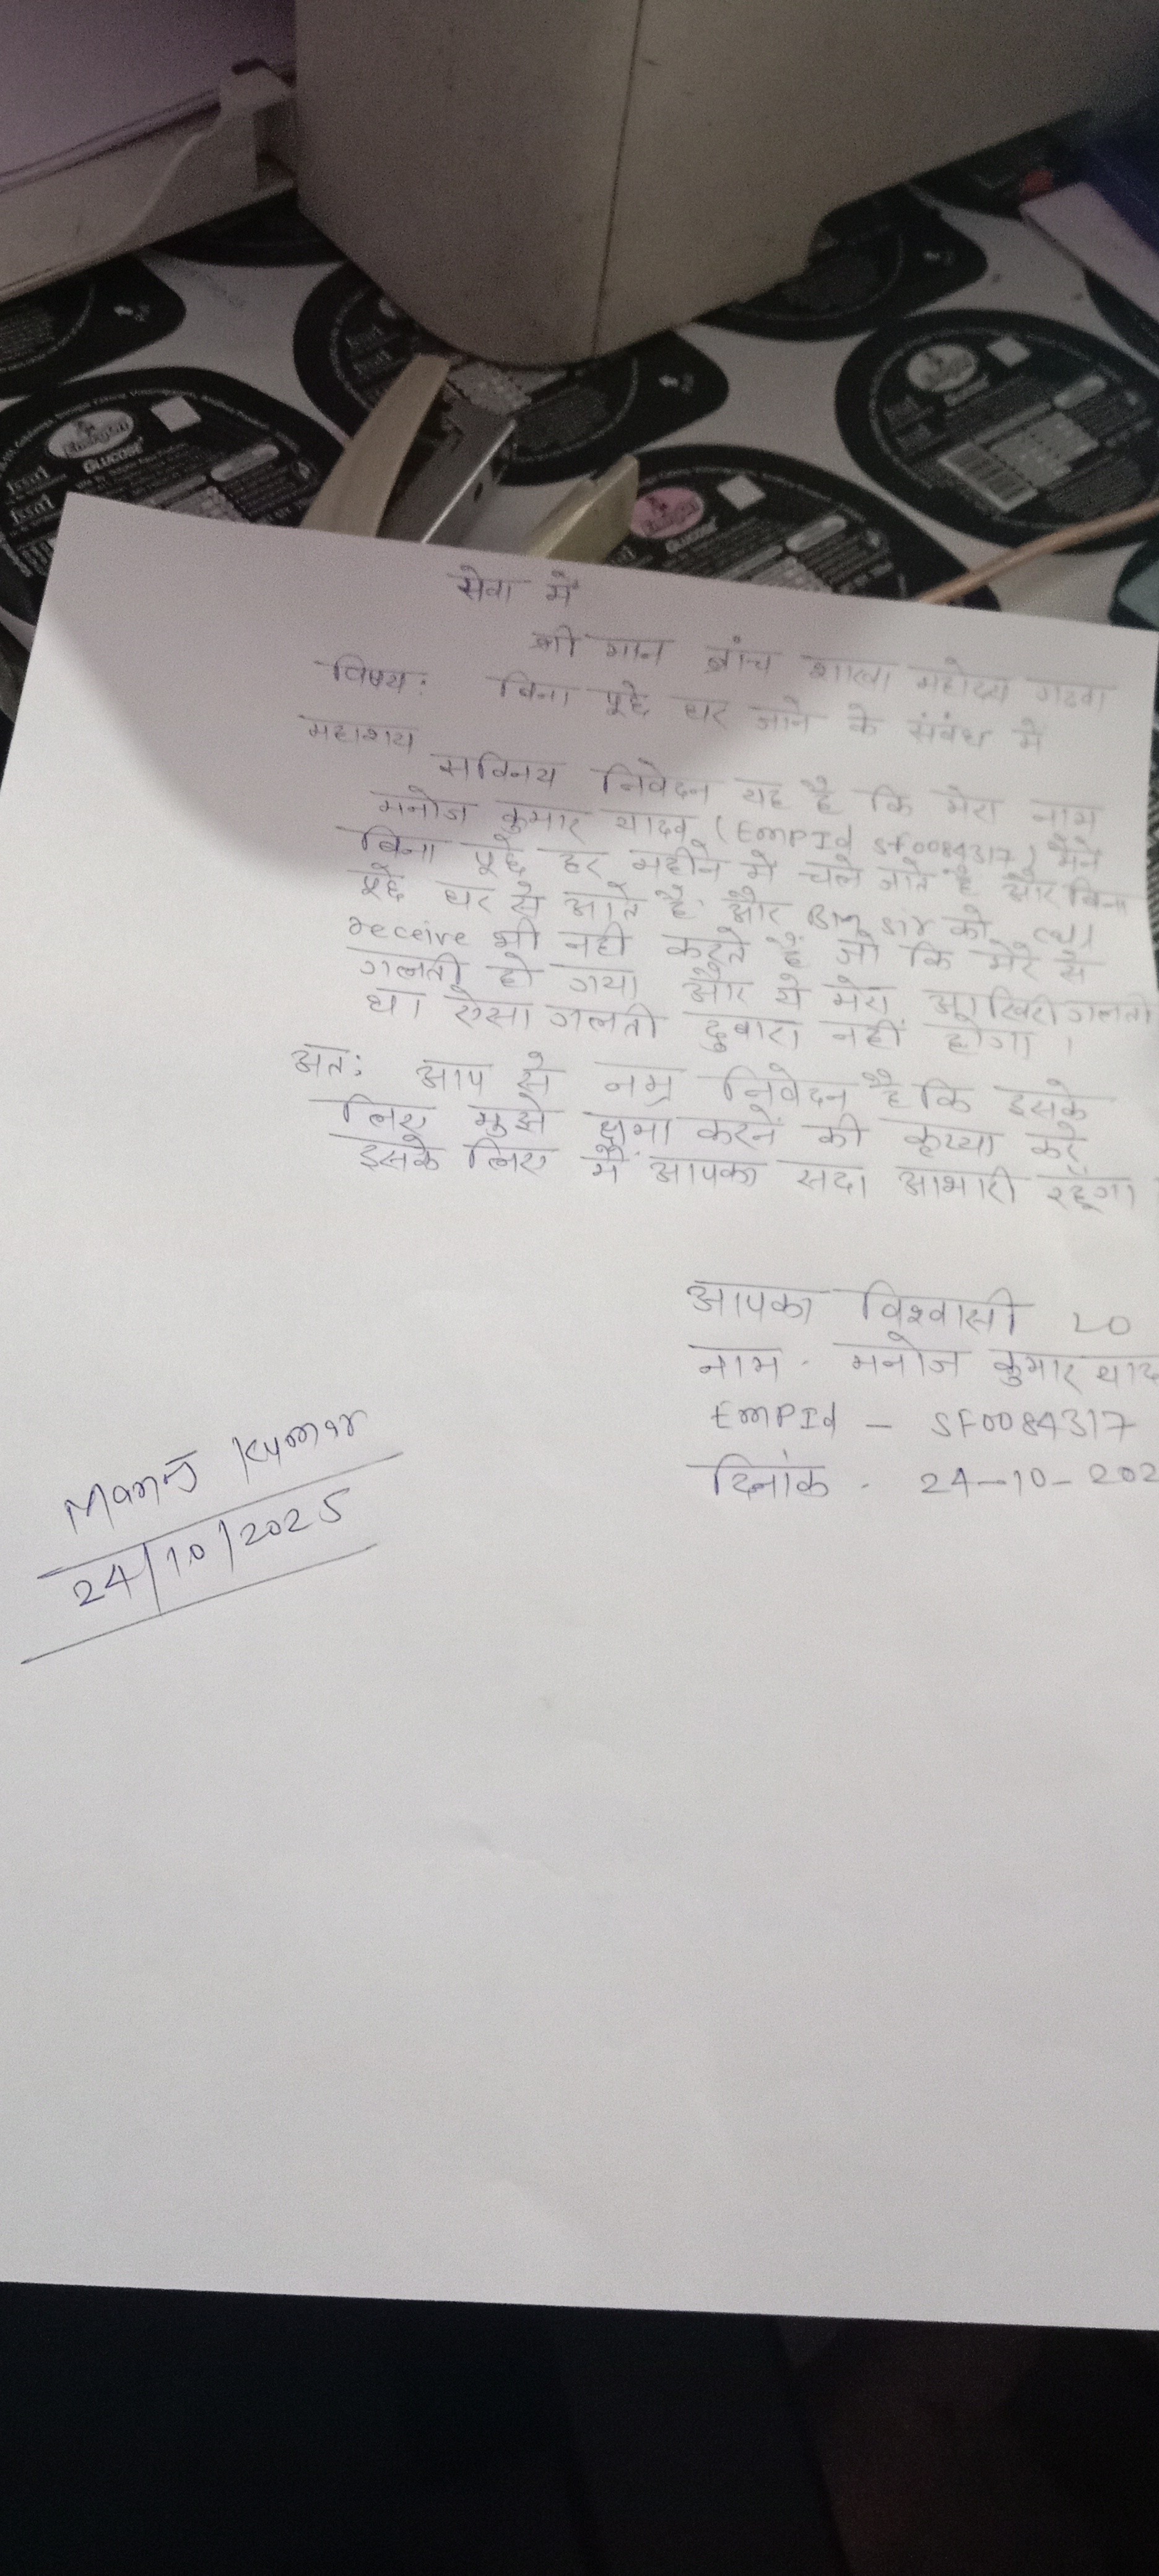 fssai
GLUCOSE
fssai
GLUCOSE
सेवा में
श्री मान ब्रांच शाखा महोदय गढवा
विषय: बिना पूछे घर जाने के संबंध में
महाशय
सविनय निवेदन यह है कि मेरा नाम
मनोज कुमार यादव (EmpId SF0084317) मैने
बिना पूछे हर महीने मे चले जाते है और बिना
पूछे घर से आते है और Bm sir को
receive भी नही करते हैं जो कि मेरे से
गलती हो गया और ये मेरा आखिरी गलती
था ऐसा गलती दुबारा नहीं होगा।
अत: आप से नम्र निवेदन है कि इसके
लिए मुझे क्षमा करने की कृप्या करें
इसके लिए मैं आपका सदा आभारी रहूँगा
आपका विश्वासी LO
नाम - मनोज कुमार याद
EmPId - SF0084317
दिनांक - 24-10-202
Manoj Kumar
24/10/2025